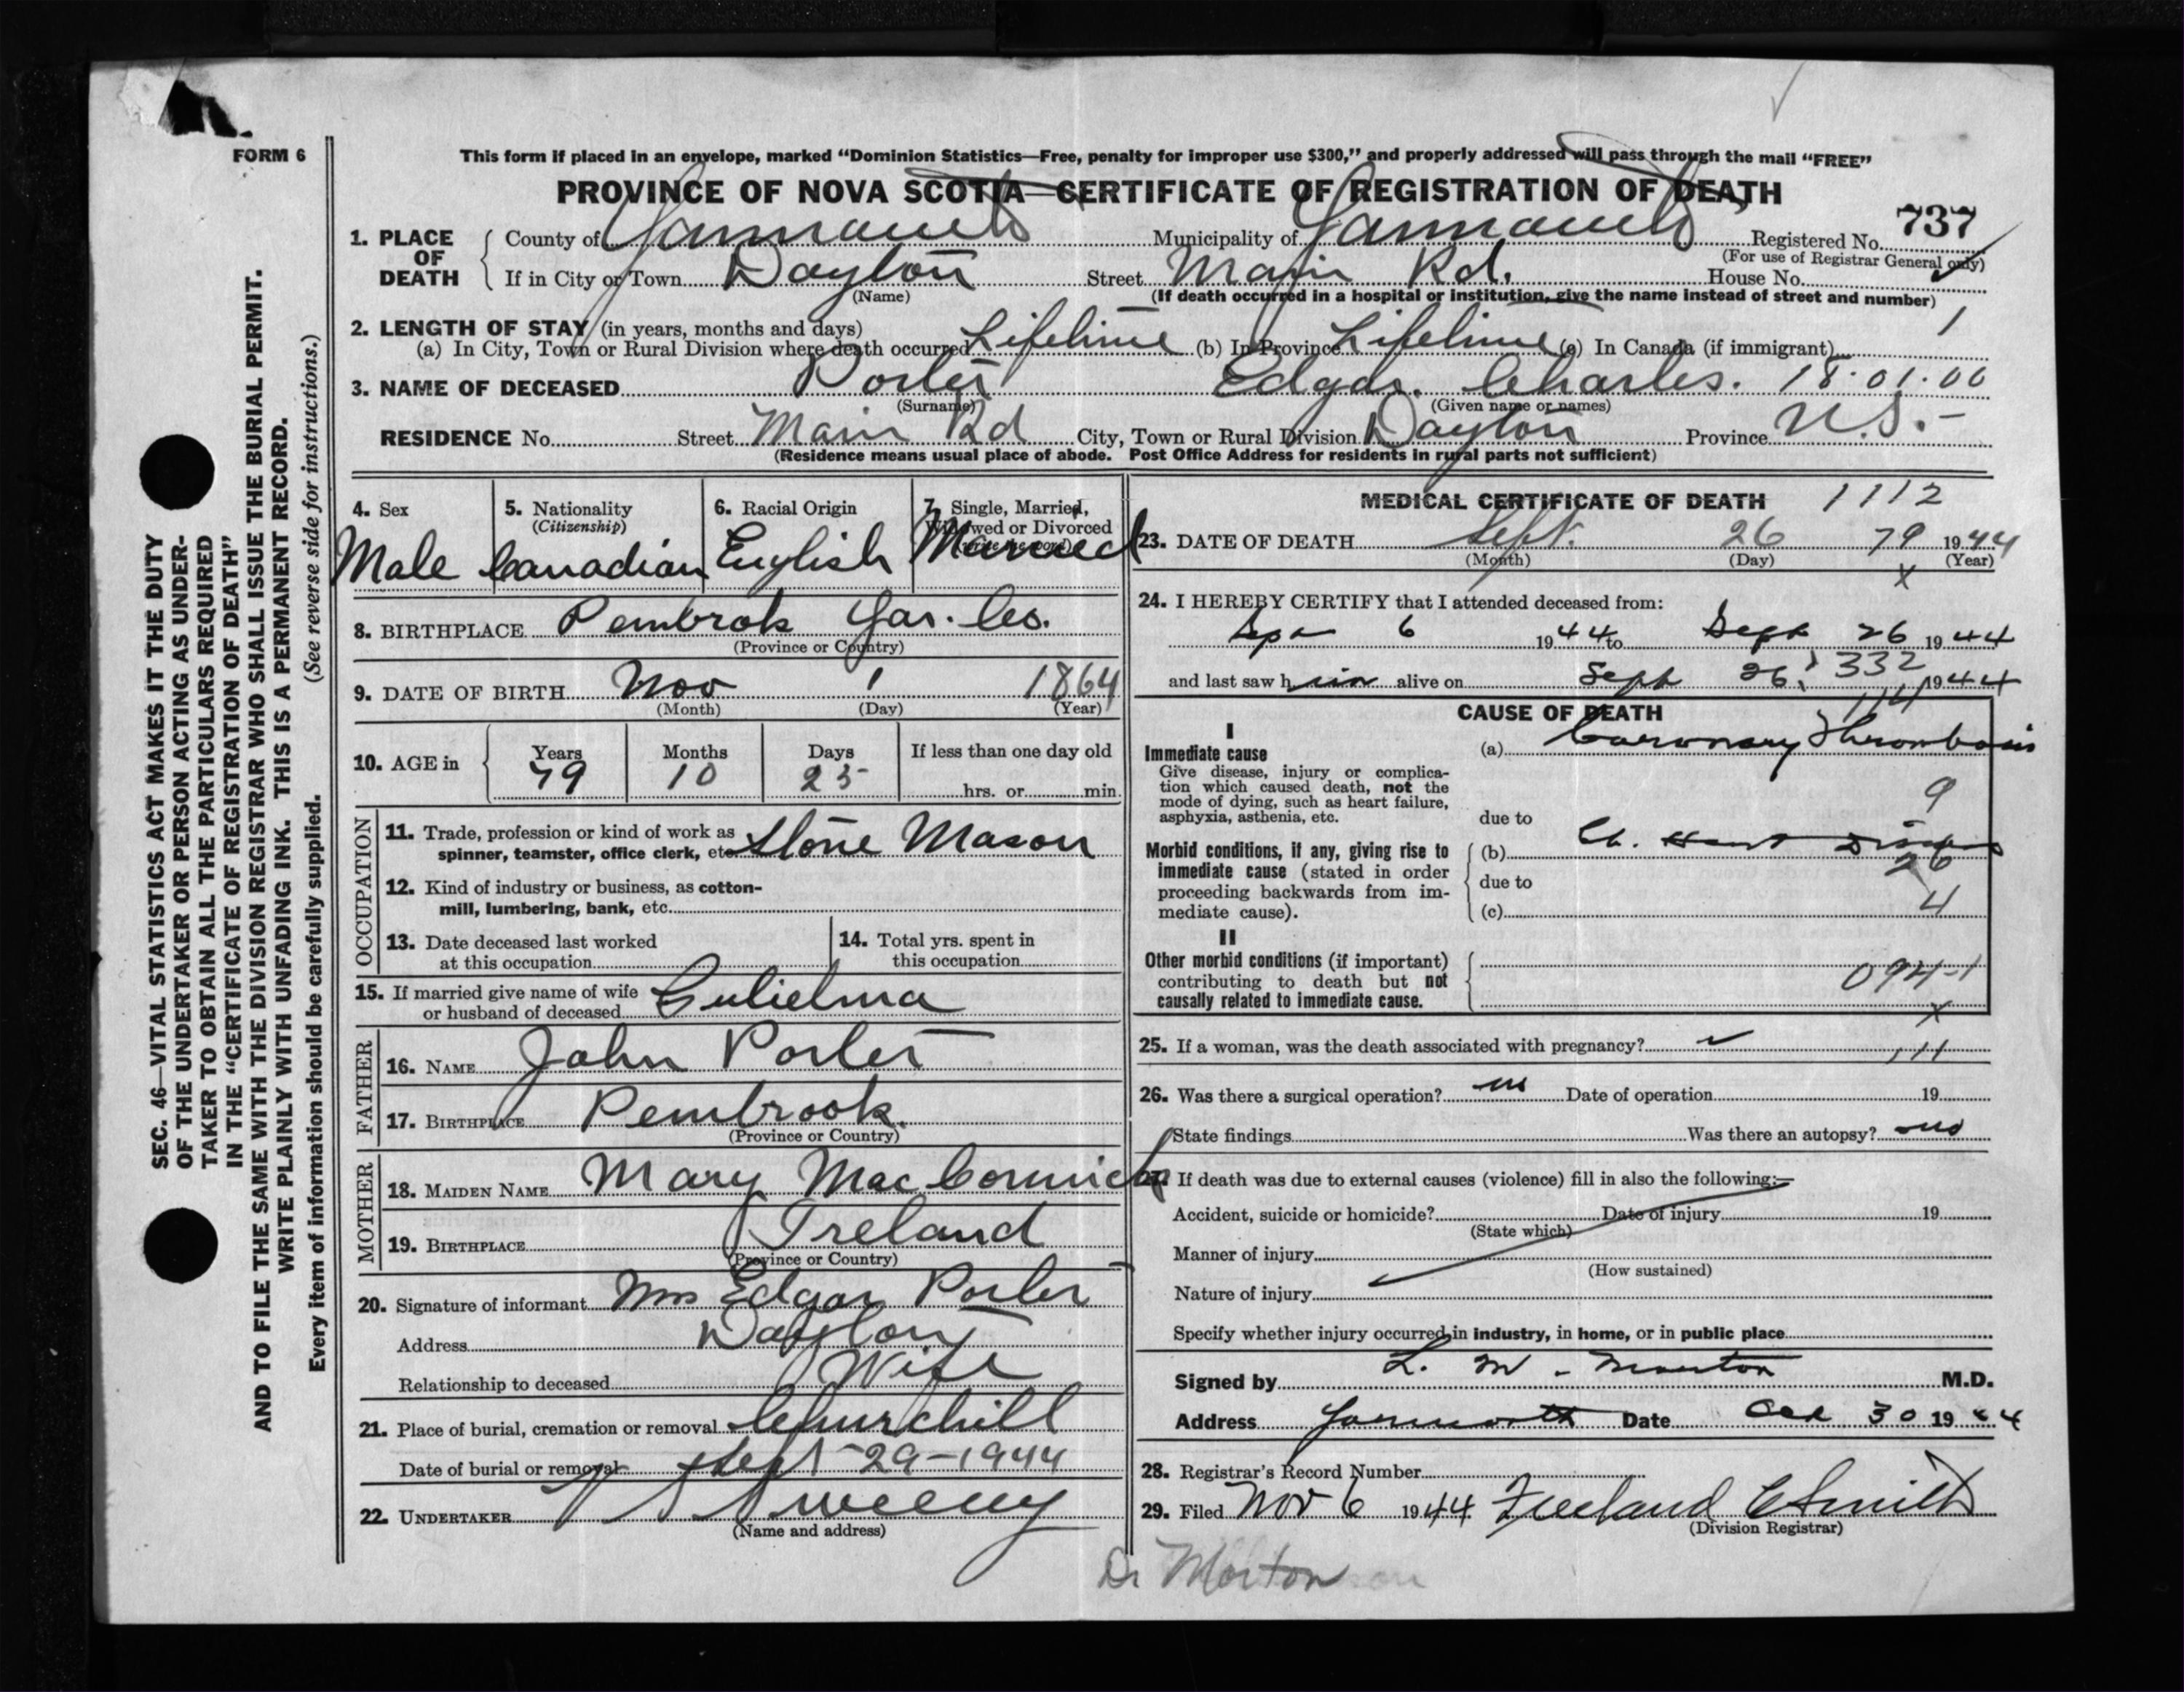 FORM 6
This form if placed in an envelope, marked "Dominion Statistics—Free, penalty for improper use $300," and properly addressed will pass through the mail "FREE"
PROVINCE OF NOVA SCOTIA—CERTIFICATE OF REGISTRATION OF DEATH
737
1. PLACE OF DEATH County of Yarmouth Municipality of Yarmouth Registered No.
(For use of Registrar General only)
If in City or Town Dayton Street Main Rd. House No.
(Name) (If death occurred in a hospital or institution, give the name instead of street and number)
2. LENGTH OF STAY (in years, months and days) 1
(a) In City, Town or Rural Division where death occurred Lifetime (b) In Province Lifetime (c) In Canada (if immigrant)
3. NAME OF DECEASED Porter Edgar Charles. 18.01.00
(Surname) (Given name or names)
RESIDENCE No. Street Main Rd City, Town or Rural Division Dayton Province N.S.-
(Residence means usual place of abode. Post Office Address for residents in rural parts not sufficient)
4. Sex 5. Nationality (Citizenship) 6. Racial Origin 7. Single, Married, Widowed or Divorced (write the word)
Male Canadian English Married
8. BIRTHPLACE Pembrok Yar. Co.
(Province or Country)
9. DATE OF BIRTH Nov 1 1864
(Month) (Day) (Year)
10. AGE in Years Months Days If less than one day old
79 10 25 hrs. or min.
OCCUPATION
11. Trade, profession or kind of work as spinner, teamster, office clerk, etc. Stone Mason
12. Kind of industry or business, as cotton-mill, lumbering, bank, etc.
13. Date deceased last worked at this occupation
14. Total yrs. spent in this occupation
15. If married give name of wife or husband of deceased Gulielma
FATHER
16. NAME John Porter
17. BIRTHPLACE Pembrook.
(Province or Country)
MOTHER
18. MAIDEN NAME Mary MacCormick
19. BIRTHPLACE Ireland
(Province or Country)
20. Signature of informant Mrs Edgar Porter
Address Dayton
Relationship to deceased Wife
21. Place of burial, cremation or removal Churchill
Date of burial or removal Sept 29-1944
22. UNDERTAKER V S Sweeny
(Name and address)
MEDICAL CERTIFICATE OF DEATH 1112
23. DATE OF DEATH Sept. 26 79 1944
(Month) (Day) (Year)
x
24. I HEREBY CERTIFY that I attended deceased from:
Sept 6 1944 to Sept 26 1944
and last saw him alive on Sept 26, 332 1944
CAUSE OF DEATH 114
I
Immediate cause (a) Coronary Thrombosis
Give disease, injury or complica-
tion which caused death, not the
mode of dying, such as heart failure,
asphyxia, asthenia, etc.
9
due to
Morbid conditions, if any, giving rise to
immediate cause (stated in order
proceeding backwards from im-
mediate cause).
(b) Ch. Heart Disease
26
due to
(c) 4
II
Other morbid conditions (if important)
contributing to death but not
causally related to immediate cause.
094-1
x
25. If a woman, was the death associated with pregnancy? 111
26. Was there a surgical operation? no Date of operation 19
State findings Was there an autopsy? no
27. If death was due to external causes (violence) fill in also the following:—
Accident, suicide or homicide? Date of injury 19
(State which)
Manner of injury
(How sustained)
Nature of injury
Specify whether injury occurred in industry, in home, or in public place
Signed by L. M. Morton M.D.
Address Yarmouth Date Oct 30 1944
28. Registrar's Record Number
29. Filed Nov 6 1944 Freeland E Smith
(Division Registrar)
Dr Morton
SEC. 46—VITAL STATISTICS ACT MAKES IT THE DUTY
OF THE UNDERTAKER OR PERSON ACTING AS UNDER-
TAKER TO OBTAIN ALL THE PARTICULARS REQUIRED
IN THE "CERTIFICATE OF REGISTRATION OF DEATH"
AND TO FILE THE SAME WITH THE DIVISION REGISTRAR WHO SHALL ISSUE THE BURIAL PERMIT.
WRITE PLAINLY WITH UNFADING INK. THIS IS A PERMANENT RECORD.
Every item of information should be carefully supplied. (See reverse side for instructions.)